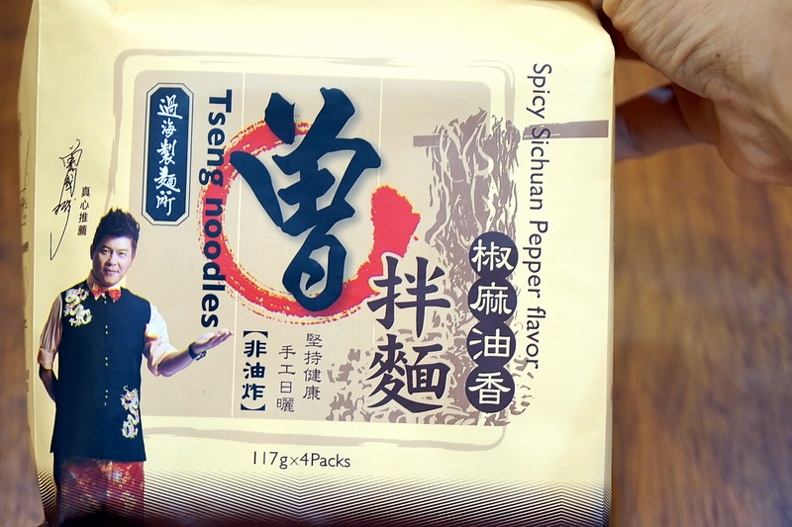 過海製麵所
Tseng noodles
曾
拌麵
Spicy Sichuan Pepper flavor
椒麻油香
真心推薦
【非油炸】
堅持健康
手工日曬
117g×4Packs